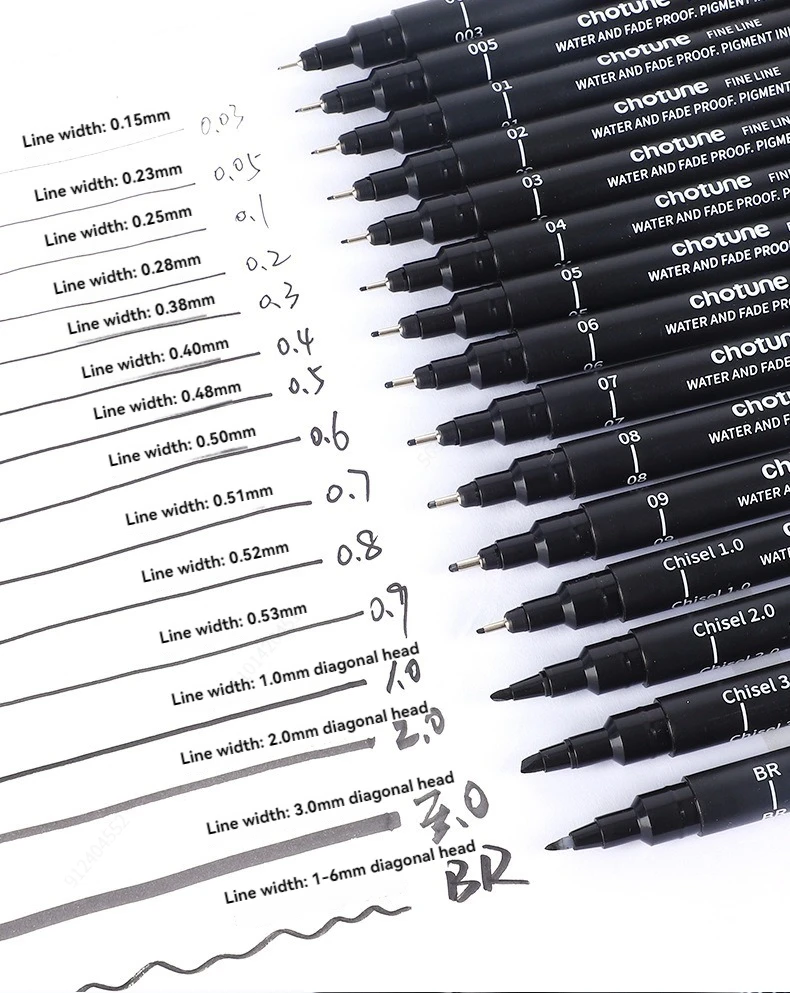 Line width: 0.15mm
0.03
Line width: 0.23mm
0.05
Line width: 0.25mm
0.1
Line width: 0.28mm
0.2
Line width: 0.38mm
0.3
Line width: 0.40mm
0.4
Line width: 0.48mm
0.5
Line width: 0.50mm
0.6
Line width: 0.51mm
0.7
Line width: 0.52mm
0.8
Line width: 0.53mm
0.9
Line width: 1.0mm diagonal head
1.0
Line width: 2.0mm diagonal head
2.0
Line width: 3.0mm diagonal head
3.0
Line width: 1-6mm diagonal head
BR
003
chotune
WATER AND FADE PROOF. PIGMENT IN
005
chotune FINE LINE
WATER AND FADE PROOF. PIGMENT INK
01
chotune FINE LINE
WATER AND FADE PROOF. PIGMEN
02
chotune FINE LINE
WATER AND FADE PROOF. PIGME
03
chotune FIN
WATER AND FADE PROOF. P
04
chotune
WATER AND FADE PROOF
05
chotune
WATER AND FADE PR
06
chotun
WATER AND FADE
07
chot
WATER AND F
08
ch
WATER A
09
WATE
Chisel 1.0
Chisel 2.0
Chisel 3
BR